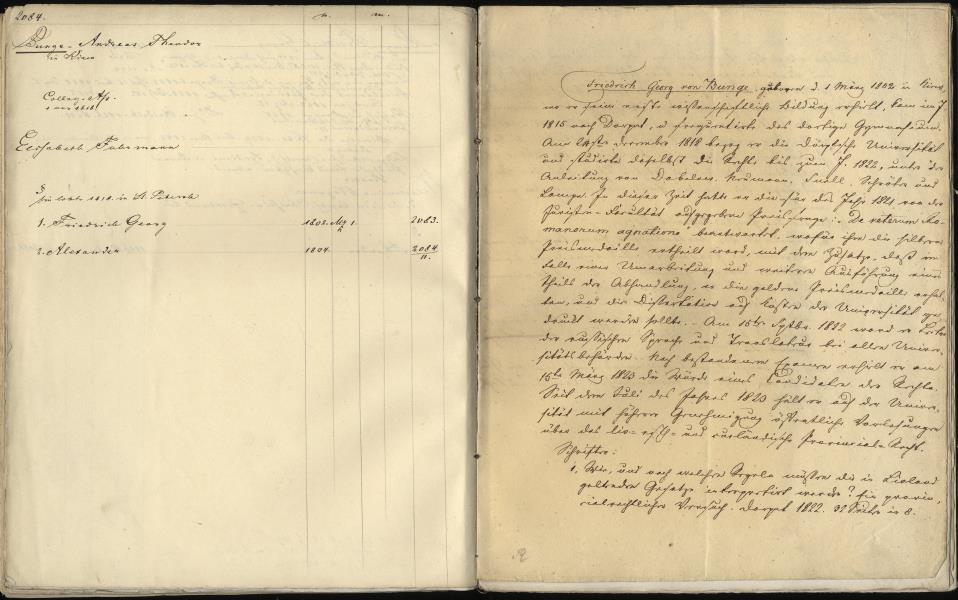 2084.
Bunge. Andreas Theodor
in Kiew
Colleg. Ass.
Elisabeth Fuhrmann
in St. Petersb.
1. Friedrich Georg 1802. Mz 1. 2083.
2. Alexander 1804. 2084.
Friedrich Georg von Bunge, geboren d. 1 März 1802 in Kiew,
wo er seine erste wissenschaftliche Bildung erhielt, kam im J.
1815 nach Dorpat, u frequentirte das dortige Gymnasium.
Am december 1818 bezog er die Dörptsche Universität
und studirte daselbst die Rechte bis zum J. 1822, unter der
Anleitung von Dabelow, Neumann, Snell, Schröter und
Lampe. In dieser Zeit hatte er die für das Jahr 1821 von der
Juristen-Facultät aufgegebene Preisfrage: "De veterum Ro-
manorum agnatione" beantwortet, wofür ihm die silberne
Preismedaille ertheilt ward, mit dem Zusatze, dass im
Falle einer Umarbeitung und weitern Ausführung eines
Theils der Abhandlung, er die goldene Preismedaille erhal-
ten, und die Dissertation auf Kosten der Universität ge-
druckt werden sollte. - Am 15ten Septbr. 1822 ward er Lector
der russischen Sprache und Translateur bei allen Univer-
sitätsbehörden. Nach bestandenem Examen erhielt er am
15ten März 1823 die Würde eines Candidaten der Rechte.
Seit dem Juli des Jahres 1823 hält er auf der Univer-
sität mit höherer Genehmigung öffentliche Vorlesungen
über das liv- esth- und curländische Provincial-Recht.
Schriften:
1, Wie, und nach welchen Regeln müssen die in Livland
geltenden Gesetze interpretirt werden? Ein provin-
cialrechtlicher Versuch. Dorpat 1822. 32 Seiten in 8.